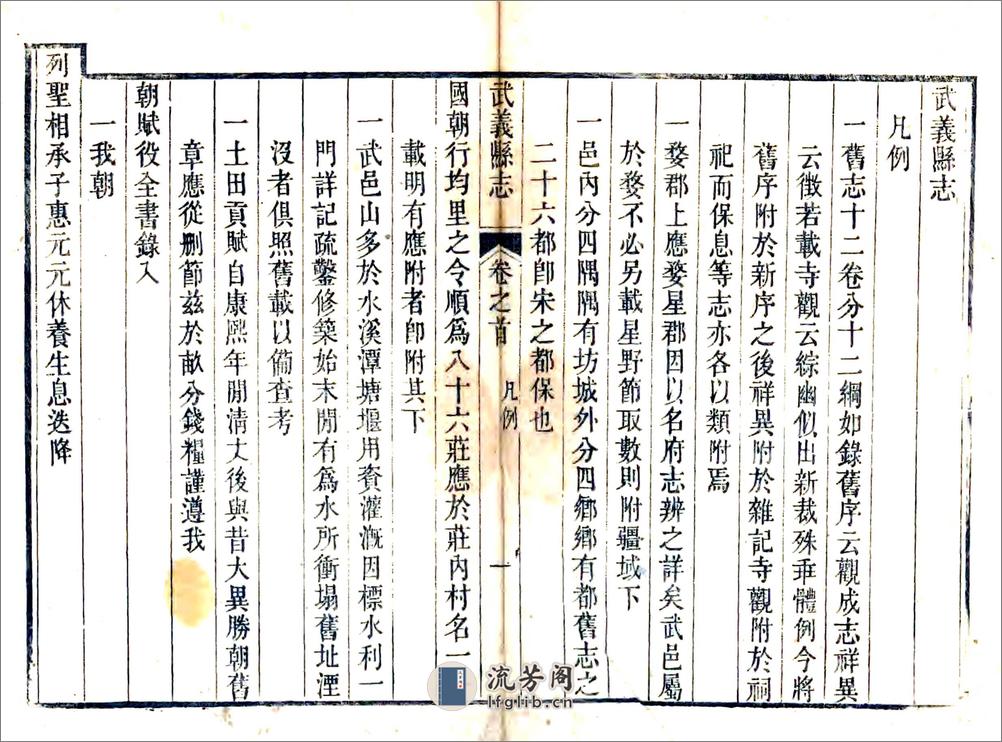 武義縣志
凡例
一舊志十二卷分十二綱如錄舊序云觀成志祥異
云徵若載寺觀云綜幽似出新裁殊乖體例今將
舊序附於新序之後祥異附於雜記寺觀附於祠
祀而保息等志亦各以類附焉
一婺郡上應婺星郡因以名府志辨之詳矣武邑屬
於婺不必另載星野節取數則附疆域下
一邑內分四隅隅有坊城外分四鄉鄉有都舊志之
二十六都卽宋之都保也
武義縣志 卷之首 凡例 一
國朝行均里之令順爲八十六莊應於莊內村名一
載明有應附者卽附其下
一武邑山多於水溪潭塘堰用資灌漑因標水利一
門詳記疏鑿修築始末閒有爲水所衝塌舊址湮
沒者俱照舊載以備查考
一土田貢賦自康熙年閒淸丈後與昔大異勝朝舊
章應從刪節兹於畝分錢糧謹遵我
朝賦役全書錄入
一我朝
列聖相承子惠元元休養生息迭降
流芳阁
lfglib.cn